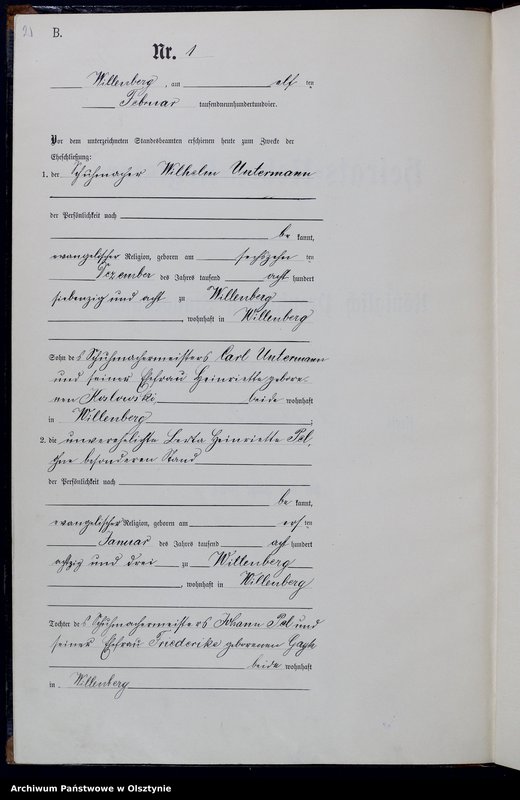 B.
Nr. 1
Willenberg, am elf ten
Februar tausendneunhundertundvier.
Vor dem unterzeichneten Standesbeamten erschienen heute zum Zwecke der
Eheschließung:
1. der Schuhmacher Wilhelm Untermann
der Persönlichkeit nach
be kannt,
evangelischer Religion, geboren am sechszehn ten
Dezember des Jahres tausend acht hundert
siebenzig und acht zu Willenberg
, wohnhaft in Willenberg
Sohn des Schuhmachermeisters Carl Untermann
und seiner Ehefrau Heinriette gebore-
nen Koslowski, beide wohnhaft
in Willenberg ;
2. die unverehelichte Berta Heinriette Pol,
ohne besonderen Stand
der Persönlichkeit nach
be kannt,
evangelischer Religion, geboren am ers ten
Januar des Jahres tausend acht hundert
achtzig und drei zu Willenberg
, wohnhaft in Willenberg
Tochter des Schuhmachermeisters Johann Pol und
seiner Ehefrau Friederike geborenen
beide wohnhaft
in Willenberg
Archiwum Państwowe w Olsztynie